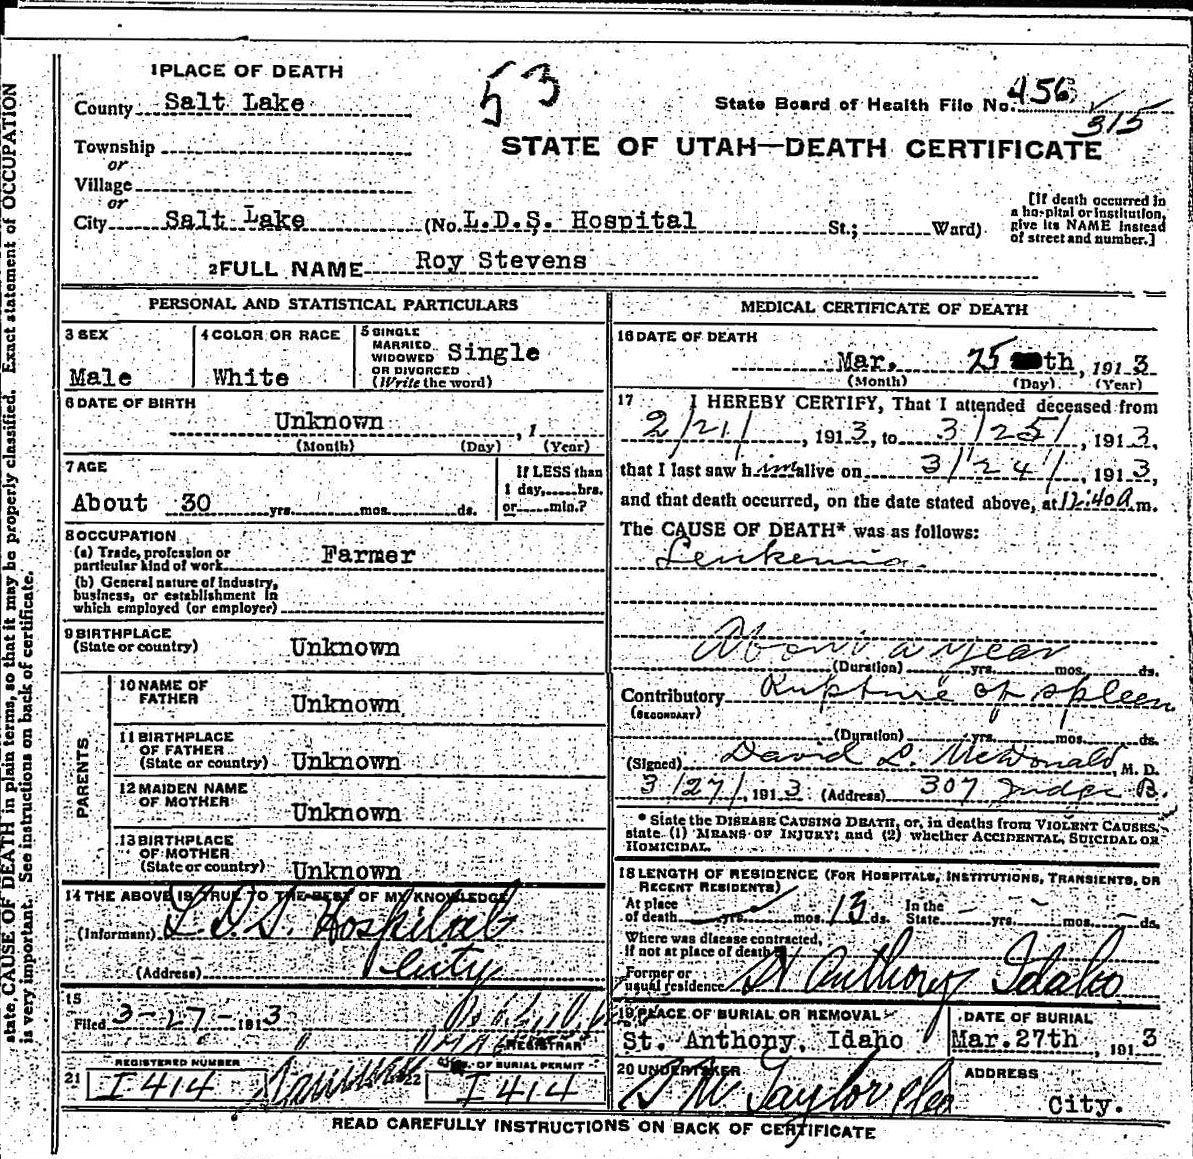 1 PLACE OF DEATH
County Salt Lake
53
State Board of Health File No. 456
315
STATE OF UTAH—DEATH CERTIFICATE
Township
or
Village
or
City Salt Lake (No. L.D.S. Hospital St.; Ward)
[If death occurred in
a hospital or institution,
give its NAME instead
of street and number.]
2 FULL NAME Roy Stevens
PERSONAL AND STATISTICAL PARTICULARS
3 SEX
Male
4 COLOR OR RACE
White
5 SINGLE
MARRIED
WIDOWED
OR DIVORCED
(Write the word)
Single
6 DATE OF BIRTH
Unknown , 1
(Month) (Day) (Year)
7 AGE
About 30 yrs. mos. ds.
If LESS than
1 day, hrs.
or min.?
8 OCCUPATION
(a) Trade, profession or
particular kind of work Farmer
(b) General nature of industry,
business, or establishment in
which employed (or employer)
9 BIRTHPLACE
(State or country) Unknown
PARENTS
10 NAME OF
FATHER Unknown
11 BIRTHPLACE
OF FATHER
(State or country) Unknown
12 MAIDEN NAME
OF MOTHER Unknown
13 BIRTHPLACE
OF MOTHER
(State or country) Unknown
14 THE ABOVE IS TRUE TO THE BEST OF MY KNOWLEDGE
(Informant) L.D.S. Hospital
(Address) City
15
Filed 3-27-1913
REGISTRAR
21 REGISTERED NUMBER
I 414
22 OF BURIAL PERMIT
I 414
MEDICAL CERTIFICATE OF DEATH
16 DATE OF DEATH
Mar. 25 th, 1913
(Month) (Day) (Year)
17 I HEREBY CERTIFY, That I attended deceased from
2/21/, 1913, to 3/25/, 1913,
that I last saw him alive on 3/24/, 1913,
and that death occurred, on the date stated above, at 12:40 a.m.
The CAUSE OF DEATH* was as follows:
Leukemia
About a year
(Duration) yrs. mos. ds.
Contributory Rupture of spleen
(SECONDARY)
(Duration) yrs. mos. ds.
(Signed) David L. McDonald, M. D.
3/27/, 1913 (Address) 307 Judge B.
* State the DISEASE CAUSING DEATH, or, in deaths from VIOLENT CAUSES,
state (1) MEANS OF INJURY; and (2) whether ACCIDENTAL, SUICIDAL OR
HOMICIDAL.
18 LENGTH OF RESIDENCE (FOR HOSPITALS, INSTITUTIONS, TRANSIENTS, OR
RECENT RESIDENTS)
At place
of death yrs. mos. 13 ds.
In the
State yrs. mos. ds.
Where was disease contracted,
if not at place of death?
Former or
usual residence St Anthony Idaho
19 PLACE OF BURIAL OR REMOVAL
St. Anthony, Idaho
DATE OF BURIAL
Mar. 27th, 1913
20 UNDERTAKER
S M Taylor
ADDRESS
City.
READ CAREFULLY INSTRUCTIONS ON BACK OF CERTIFICATE
state CAUSE OF DEATH in plain terms, so that it may be properly classified. Exact statement of OCCUPATION
is very important. See instructions on back of certificate.